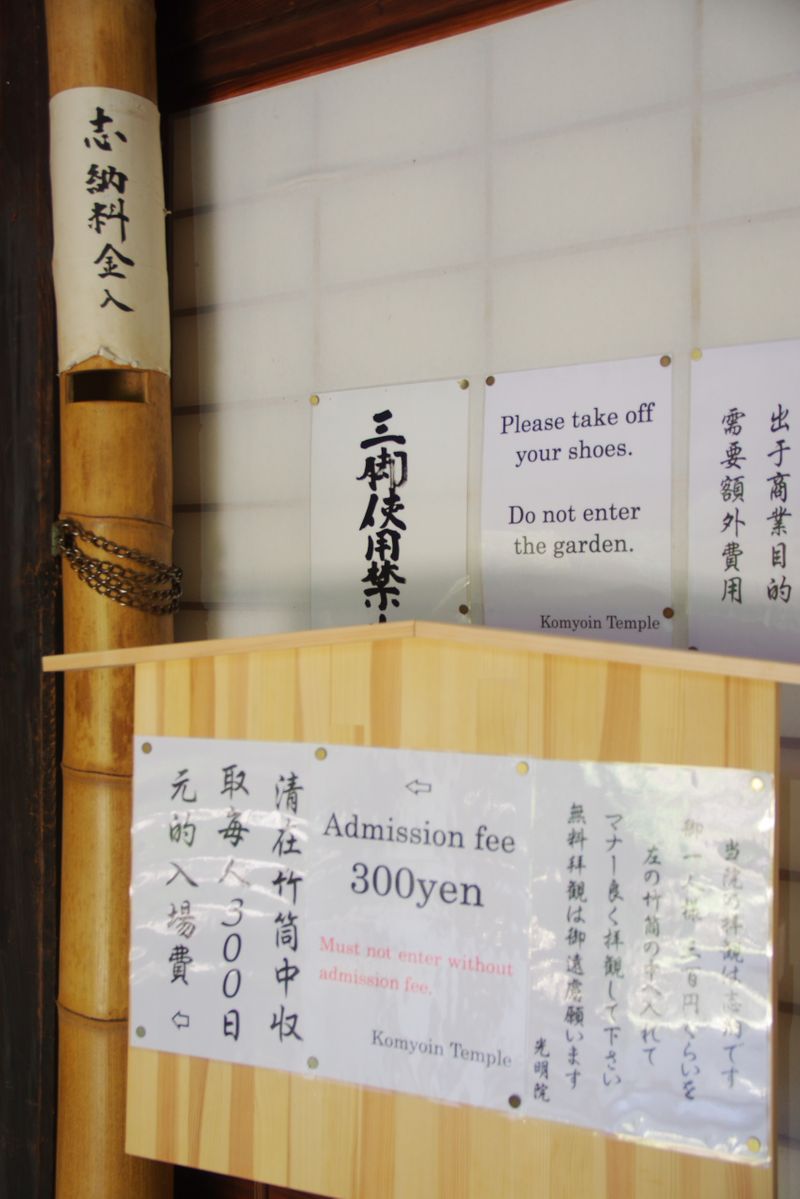 志納料金入
三脚使用禁
Please take off
your shoes.
Do not enter
the garden.
Komyoin Temple
出于商業目的
需要額外費用
清在竹筒中収
取每人300日
元的入場費 ⇦
⇦
Admission fee
300yen
Must not enter without
admission fee.
Komyoin Temple
当院の拝観は志納です
御一人様 三百円くらいを
左の竹筒の中へ入れて
マナー良く拝観して下さい
無料拝観は御遠慮願います
光明院